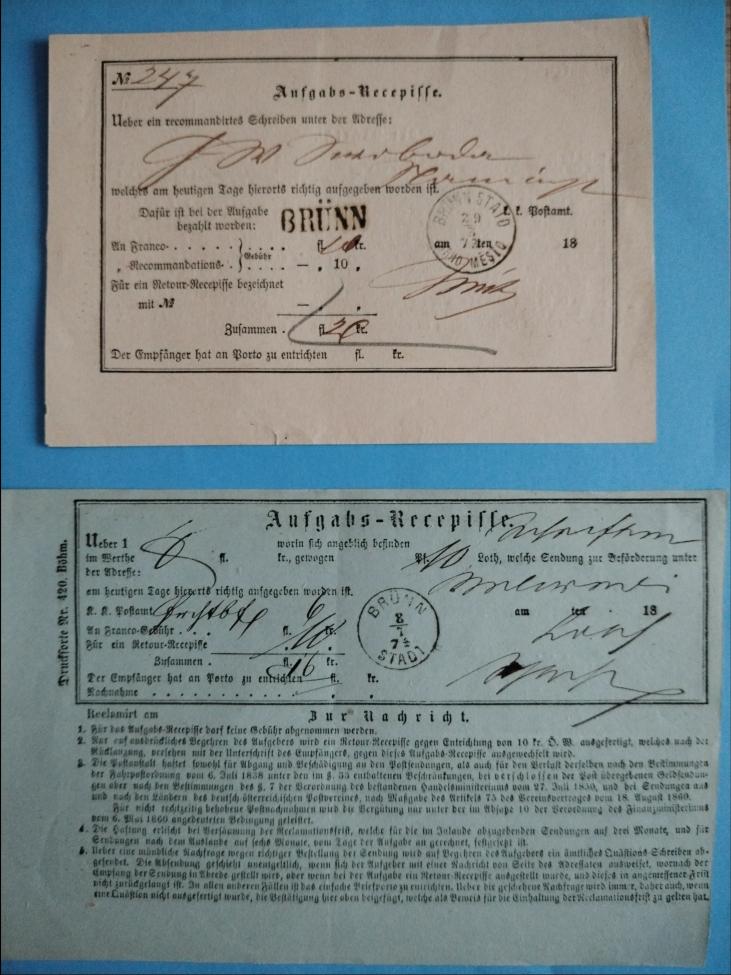 № 247
Aufgabs-Recepisse.
Ueber ein recommandirtes Schreiben unter der Adresse:
J W Swoboda
welches am heutigen Tage hierorts richtig aufgegeben worden ist.
Dafür ist bei der Aufgabe bezahlt worden:
BRÜNN
BRÜNN STADT
29
k. k. Postamt.
An Franco fl. 10 kr.
Gebühr
am ten 18
BRNO MĚSTO
„ Recommandations. — „ 10 „
Für ein Retour-Recepisse bezeichnet
mit № — „ „
Zusammen . fl. 20 kr.
Der Empfänger hat an Porto zu entrichten fl. kr.
Druckforte Nr. 420. Böhm.
Aufgabs-Recepisse.
Ueber 1 worin sich angeblich befinden
im Werthe fl. kr., gewogen Pf. 10 Loth, welche Sendung zur Beförderung unter
der Adresse:
am heutigen Tage hierorts richtig aufgegeben worden ist.
K. K. Postamt
am ten 18
BRÜNN
8
7
STADT
An Franco-Gebühr . . . fl. kr.
Für ein Retour-Recepisse 10
Zusammen . fl. 16 kr.
Der Empfänger hat an Porto zu entrichten fl. kr.
Nachnahme
Reclamirt am
Zur Nachricht.
1. Für das Aufgabs-Recepisse darf keine Gebühr abgenommen werden.
2. Nur auf ausdrückliches Begehren des Aufgebers wird ein Retour-Recepisse gegen Entrichtung von 10 kr. Ö. W. ausgefertigt, welches nach der
Rücklangung, versehen mit der Unterschrift des Empfängers, gegen dieses Aufgabs-Recepisse ausgewechselt wird.
3. Die Postanstalt haftet sowohl für Abgang und Beschädigung an den Postsendungen, als auch für den Verlust derselben nach den Bestimmungen
der Fahrpostordnung vom 6. Juli 1838 unter den im §. 55 enthaltenen Beschränkungen, bei verschlossen der Post übergebenen Geldsendun-
gen aber nach den Bestimmungen des §. 7 der Verordnung des bestandenen Handelsministeriums vom 27. Juli 1850, und bei Sendungen aus
und nach den Ländern des deutsch-österreichischen Postvereines, nach Maßgabe des Artikels 75 des Vereinsvertrages vom 18. August 1860.
Für nicht rechtzeitig behobene Postnachnahmen wird die Vergütung nur unter der im Absaze 10 der Verordnung des Finanzministeriums
vom 6. Mai 1860 angedeuteten Bedingung geleistet.
4. Die Haftung erlischt bei Versäumung der Reclamationsfrist, welche für die im Inlande abzugebenden Sendungen auf drei Monate, und für
Sendungen nach dem Auslande auf sechs Monate, vom Tage der Aufgabe an gerechnet, festgesetzt ist.
5. Ueber eine mündliche Nachfrage wegen richtiger Bestellung der Sendung wird auf Begehren des Aufgebers ein ämtliches Quästions-Schreiben ab-
gesendet. Die Absendung geschieht unentgeltlich, wenn sich der Aufgeber mit einer Nachricht von Seite des Adressaten ausweiset, wornach der
Empfang der Sendung in Abrede gestellt wird, oder wenn bei der Aufgabe ein Retour-Recepisse ausgestellt wurde, und dieses in angemessener Frist
nicht zurückgelangt ist. In allen anderen Fällen ist das einfache Briefporto zu entrichten. Ueber die geschehene Nachfrage wird immer, daher auch, wenn
eine Quästion nicht ausgefertigt wurde, die Bestätigung hier oben beigefügt, welche als Beweis für die Einhaltung der Reclamationsfrist zu gelten hat.